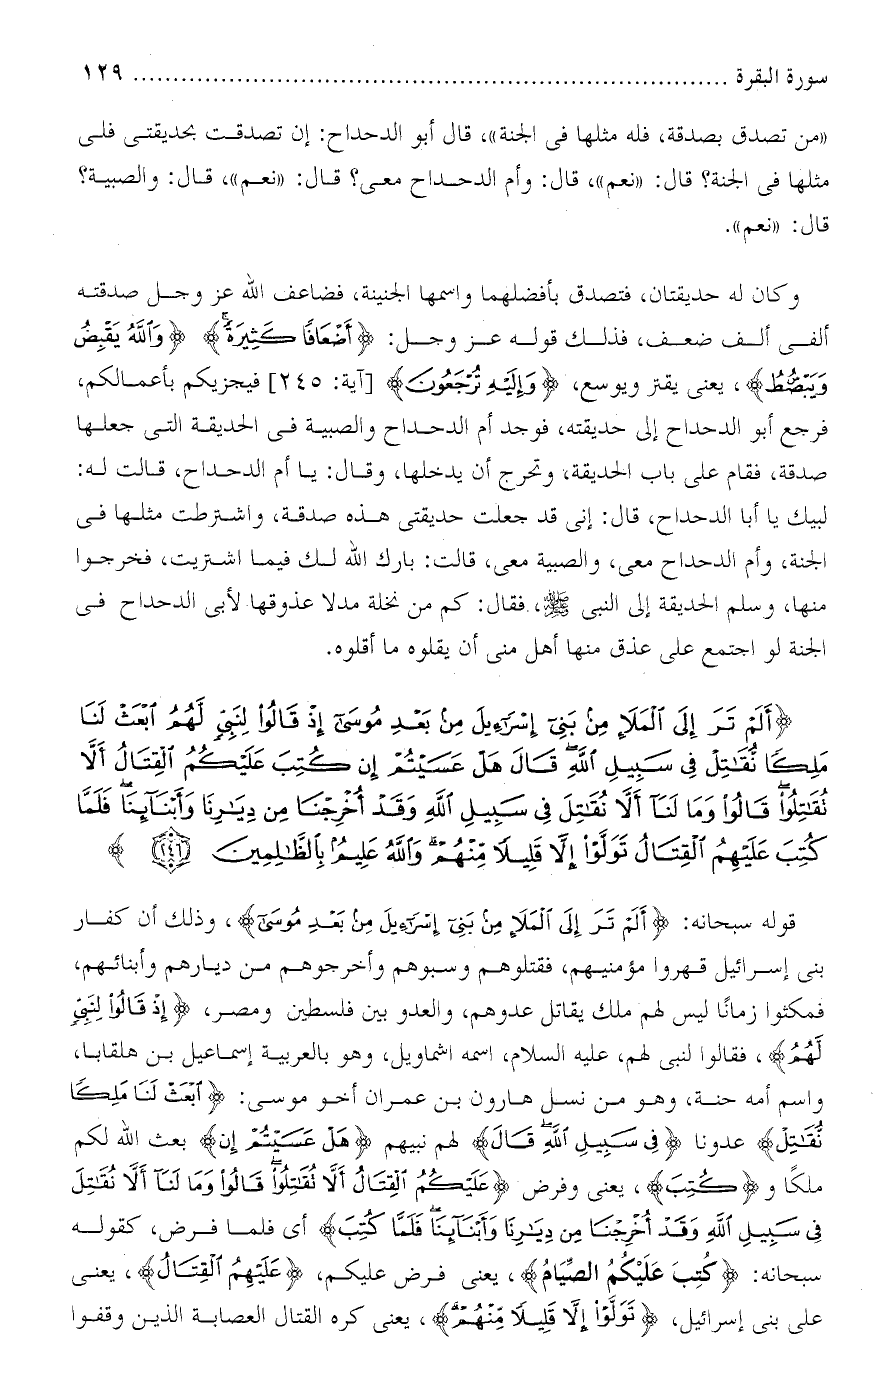 سورة البقرة ........................................................................ ١٢٩
«من تصدق بصدقة، فله مثلها فى الجنة»، قال أبو الدحداح: إن تصدقت بحديقتى فلى
مثلها فى الجنة؟ قال: «نعم»، قال: وأم الدحداح معى؟ قال: «نعم»، قال: والصبية؟
قال: «نعم».
وكان له حديقتان، فتصدق بأفضلهما واسمها الجنينة، فضاعف الله عز وجل صدقته
ألفى ألف ضعف، فذلك قوله عز وجل: ﴿أَضْعَافًا كَثِيرَةً﴾ ﴿وَاللَّهُ يَقْبِضُ
وَيَبْصُطُ﴾، يعنى يقتر ويوسع، ﴿وَإِلَيْهِ تُرْجَعُونَ﴾ [آية: ٢٤٥] فيجزيكم بأعمالكم،
فرجع أبو الدحداح إلى حديقته، فوجد أم الدحداح والصبية فى الحديقة التى جعلها
صدقة، فقام على باب الحديقة، وتحرج أن يدخلها، وقال: يا أم الدحداح، قالت له:
لبيك يا أبا الدحداح، قال: إنى قد جعلت حديقتى هذه صدقة، واشترطت مثلها فى
الجنة، وأم الدحداح معى، والصبية معى، قالت: بارك الله لك فيما اشتريت، فخرجوا
منها، وسلم الحديقة إلى النبى ﷺ، فقال: كم من نخلة مدلا عذوقها لأبى الدحداح فى
الجنة لو اجتمع على عذق منها أهل منى أن يقلوه ما أقلوه.
﴿أَلَمْ تَرَ إِلَى الْمَلَإِ مِنْ بَنِي إِسْرَائِيلَ مِنْ بَعْدِ مُوسَى إِذْ قَالُوا لِنَبِيٍّ لَهُمُ ابْعَثْ لَنَا
مَلِكًا نُقَاتِلْ فِي سَبِيلِ اللَّهِ قَالَ هَلْ عَسَيْتُمْ إِنْ كُتِبَ عَلَيْكُمُ الْقِتَالُ أَلَّا
تُقَاتِلُوا قَالُوا وَمَا لَنَا أَلَّا نُقَاتِلَ فِي سَبِيلِ اللَّهِ وَقَدْ أُخْرِجْنَا مِنْ دِيَارِنَا وَأَبْنَائِنَا فَلَمَّا
كُتِبَ عَلَيْهِمُ الْقِتَالُ تَوَلَّوْا إِلَّا قَلِيلًا مِنْهُمْ وَاللَّهُ عَلِيمٌ بِالظَّالِمِينَ ٢٤٦ ﴾
قوله سبحانه: ﴿أَلَمْ تَرَ إِلَى الْمَلَإِ مِنْ بَنِي إِسْرَائِيلَ مِنْ بَعْدِ مُوسَى﴾، وذلك أن كفار
بنى إسرائيل قهروا مؤمنيهم، فقتلوهم وسبوهم وأخرجوهم من ديارهم وأبنائهم،
فمكثوا زمانًا ليس لهم ملك يقاتل عدوهم، والعدو بين فلسطين ومصر، ﴿إِذْ قَالُوا لِنَبِيٍّ
لَهُمُ﴾، فقالوا لنبى لهم، عليه السلام، اسمه اشماويل، وهو بالعربية إسماعيل بن هلقابا،
واسم أمه حنة، وهو من نسل هارون بن عمران أخو موسى: ﴿ابْعَثْ لَنَا مَلِكًا
نُقَاتِلْ﴾ عدونا ﴿فِي سَبِيلِ اللَّهِ قَالَ﴾ لهم نبيهم ﴿هَلْ عَسَيْتُمْ إِنْ﴾ بعث الله لكم
ملكًا و ﴿كُتِبَ﴾، يعنى وفرض ﴿عَلَيْكُمُ الْقِتَالُ أَلَّا تُقَاتِلُوا قَالُوا وَمَا لَنَا أَلَّا نُقَاتِلَ
فِي سَبِيلِ اللَّهِ وَقَدْ أُخْرِجْنَا مِنْ دِيَارِنَا وَأَبْنَائِنَا فَلَمَّا كُتِبَ﴾ أى فلما فرض، كقوله
سبحانه: ﴿كُتِبَ عَلَيْكُمُ الصِّيَامُ﴾، يعنى فرض عليكم، ﴿عَلَيْهِمُ الْقِتَالُ﴾، يعنى
على بنى إسرائيل، ﴿تَوَلَّوْا إِلَّا قَلِيلًا مِنْهُمْ﴾، يعنى كره القتال العصابة الذين وقفوا